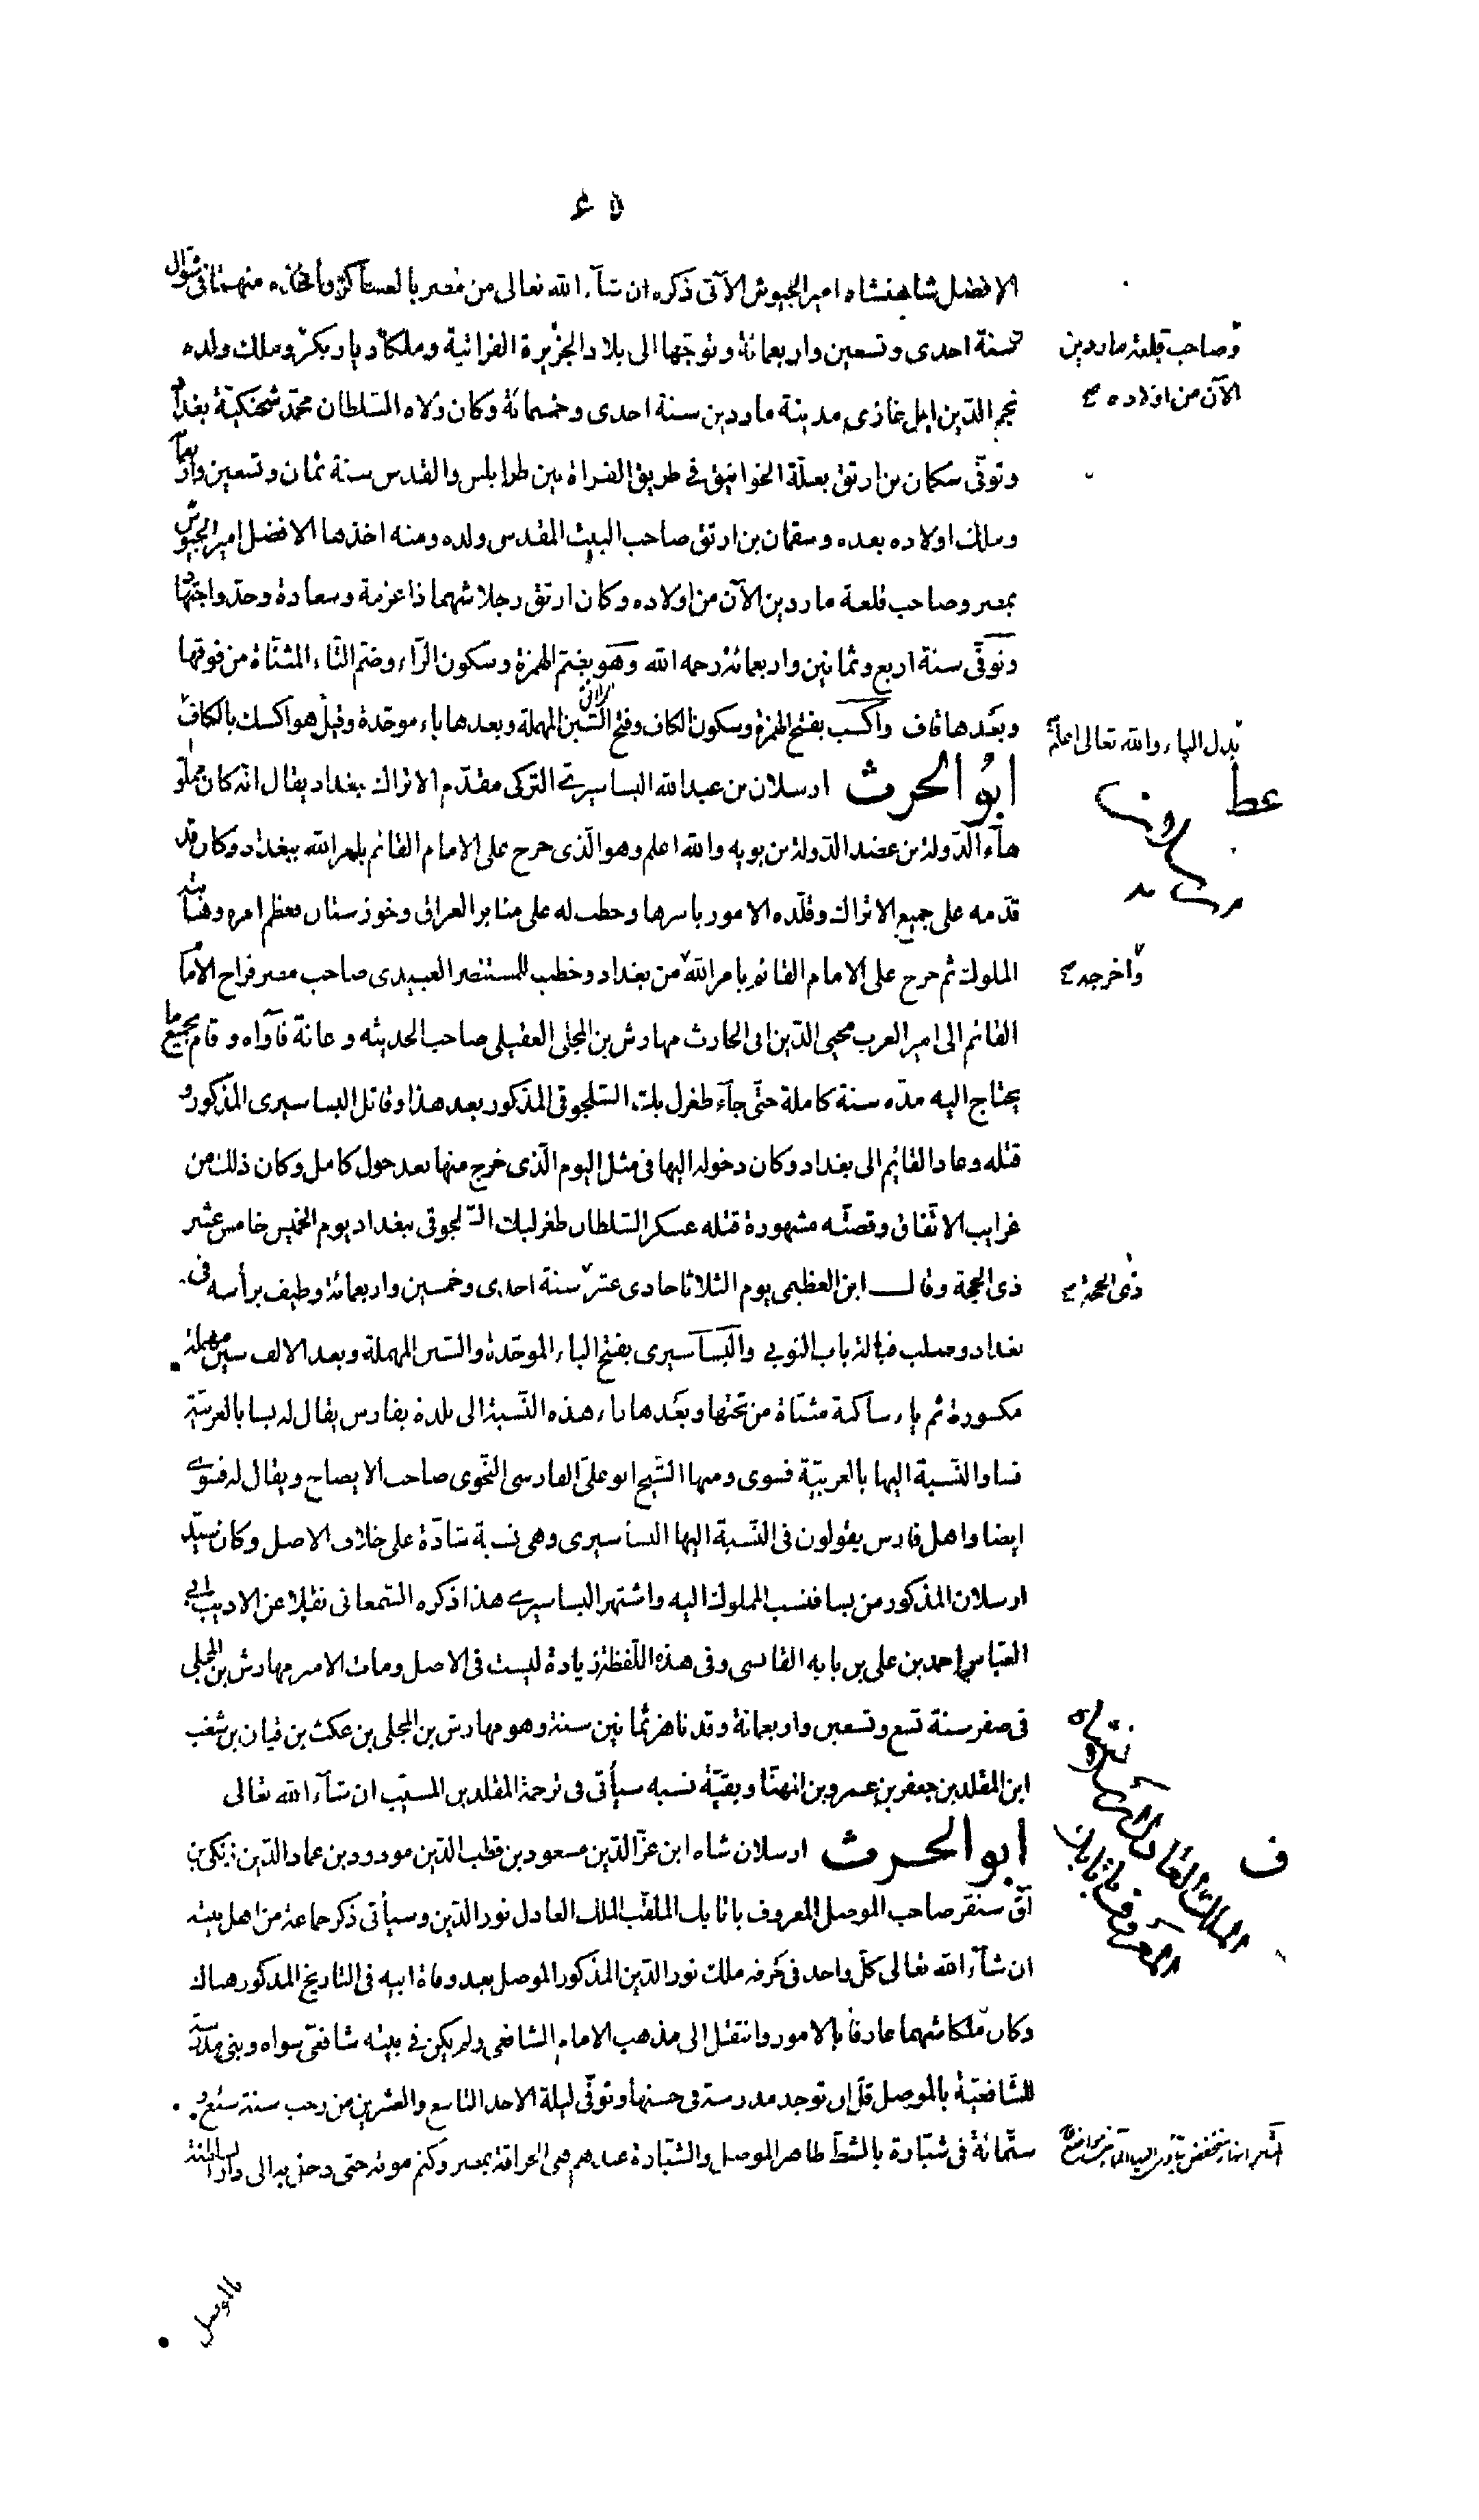 ٤٥
الافضل شاهنشاه امير الجيوش الآتى ذكره ان شآء الله تعالى من مصر بالعساكر وأخذه منهما فى شوال
سنة احدى وتسعين واربعمائة وتوجّها الى بلاد الجزيرة الفراتية وملكا ديار بكر وملك ولده
وصاحب قلعة ماردين
الآن من اولاده صح
نجم الدّين ايل غازى مدينة ماردين سنة احدى وخمسمائة وكان ولاه السّلطان محمّد شحنكيّة بغداد
وتوفّى سكمان بن ارتق بعلّة الخوانيق فى طريق الفراة بين طرابلس والقدس سنة ثمان وتسعين واربعمائة
وملك اولاده بعده وسقمان بن ارتق صاحب البيت المقدس ولده ومنه اخذها الافضل امير الجيوش
بمصر وصاحب قلعة ماردين الآن من اولاده وكان ارتق رجلا شهما ذا عزمة وسعادة وجدّ واجتهاد
وتوفّى سنة اربع وثمانين واربعمائة رحمه الله وهو بضم الهمزة وسكون الرّاء وضم التّاء المثنّاة من فوقها
وبعدها قاف واكسب بفتح الهمزة وسكون الكاف وفتح السّين المهملة وبعدها باء موحّدة وقيل هو اكسك بالكاف
بدل الباء والله تعالى اعلم
عط
ارسلان
ابو الحرث ارسلان بن عبد الله البساسيرى التركى مقدّم الاتراك ببغداد يقال انه كان مملوك
بهآء الدّولة بن عضد الدّولة بن بويه والله اعلم وهو الّذى خرج على الامام القائم بامر الله ببغداد وكان قد
قدّمه على جميع الاتراك وقلّده الامور باسرها وخطب له على منابر العراق وخوزستان فعظم امره وهابته
الملوك ثم خرج على الامام القائم بامر الله من بغداد وخطب للمستنصر العبيدى صاحب مصر فراح الامام
واخرجه صح
القائم الى امير العرب محيى الدّين ابى الحارث مهارش بن المجلى العقيلى صاحب الحديثه وعانة فآواه وقام بجميع ما
يحتاج اليه مدّه سنة كاملة حتّى جآء طغرل بك السّلجوقى المذكور بعد هذا وقاتل البساسيرى المذكور و
قتله وعاد القائم الى بغداد وكان دخوله اليها فى مثل اليوم الّذى خرج منها بعد حول كامل وكان ذلك من
غرايب الاتّفاق وقصّته مشهورة قتله عسكر السّلطان طغرلبك السّلجوقى ببغداد يوم الخميس خامس عشر
ذى الحجة وقال ابن العظيمى يوم الثلاثا حادى عشر سنة احدى وخمسين واربعمائة وطيف برأسه فى
ذى الحجة صح
بغداد وصلب قبالة باب النوبى والبساسيرى بفتح الباء الموحّدة والسّين المهملة وبعد الالف سين مهملة
مكسورة ثم ياء ساكنة مثنّاة من تحتها وبعدها راء هذه النّسبة الى بلدة بفارس يقال له بسا بالعربيّة
فسا والنّسبة اليها بالعربيّة فسوى ومنها الشّيخ ابو علىّ الفارسى النّحوى صاحب الايضاح ويقال له فسوى
ايضا واهل فارس يقولون فى النّسبة اليها البساسيرى وهى نسبة شاذّة على خلاف الاصل وكان سيّد
ارسلان المذكور من بسا فنسب المملوك اليه واشتهر البساسيرى هذا ذكره السّمعانى نقلا عن الاديب ابى
العبّاس احمد بن على بن بابه القاسى وفى هذه اللّفظة زيادة ليست فى الاصل ومات الامير مهارش بن المجلى
فى صفر سنة تسع وتسعين واربعمائة وقد ناهز ثمانين سنة وهو مهارش بن المجلى بن عكث بن قيان بن شعب
ابن المقلد بن جعفر بن عمرو بن المهنّا وبقيّة نسبه سيأتى فى ترجمة المقلد بن المسيّب ان شآء الله تعالى
ف
الملك العادل ارسلان شاه
المعروف باتابك
ابو الحرث ارسلان شاه ابن عزّ الدّين مسعود بن قطب الدّين مودود بن عماد الدّين زنكى بن
آق سنقر صاحب الموصل المعروف باتابك الملقّب الملك العادل نور الدّين وسيأتى ذكر جماعة من اهل بيته
ان شآء الله تعالى كلّ واحد فى حرفه ملك نور الدّين المذكور الموصل بعد وفاة ابيه فى التاريخ المذكور هناك
وكان ملكا شهما عارفا بالامور وانتقل الى مذهب الامام الشافعى ولم يكن فى بيته شافعىّ سواه وبنى مدرسة
للشّافعيّة بالموصل قلّ ان توجد مدرسة فى حسنها وتوفّى ليلة الاحد التاسع والعشرين من رجب سنة سبع و
ستّمائة فى شبّارة بالشطّ ظاهر الموصل والشبّارة عندهم هى الحراقة بمصر وكتم موته حتى دخل به الى دار السلطنة
بالموصل